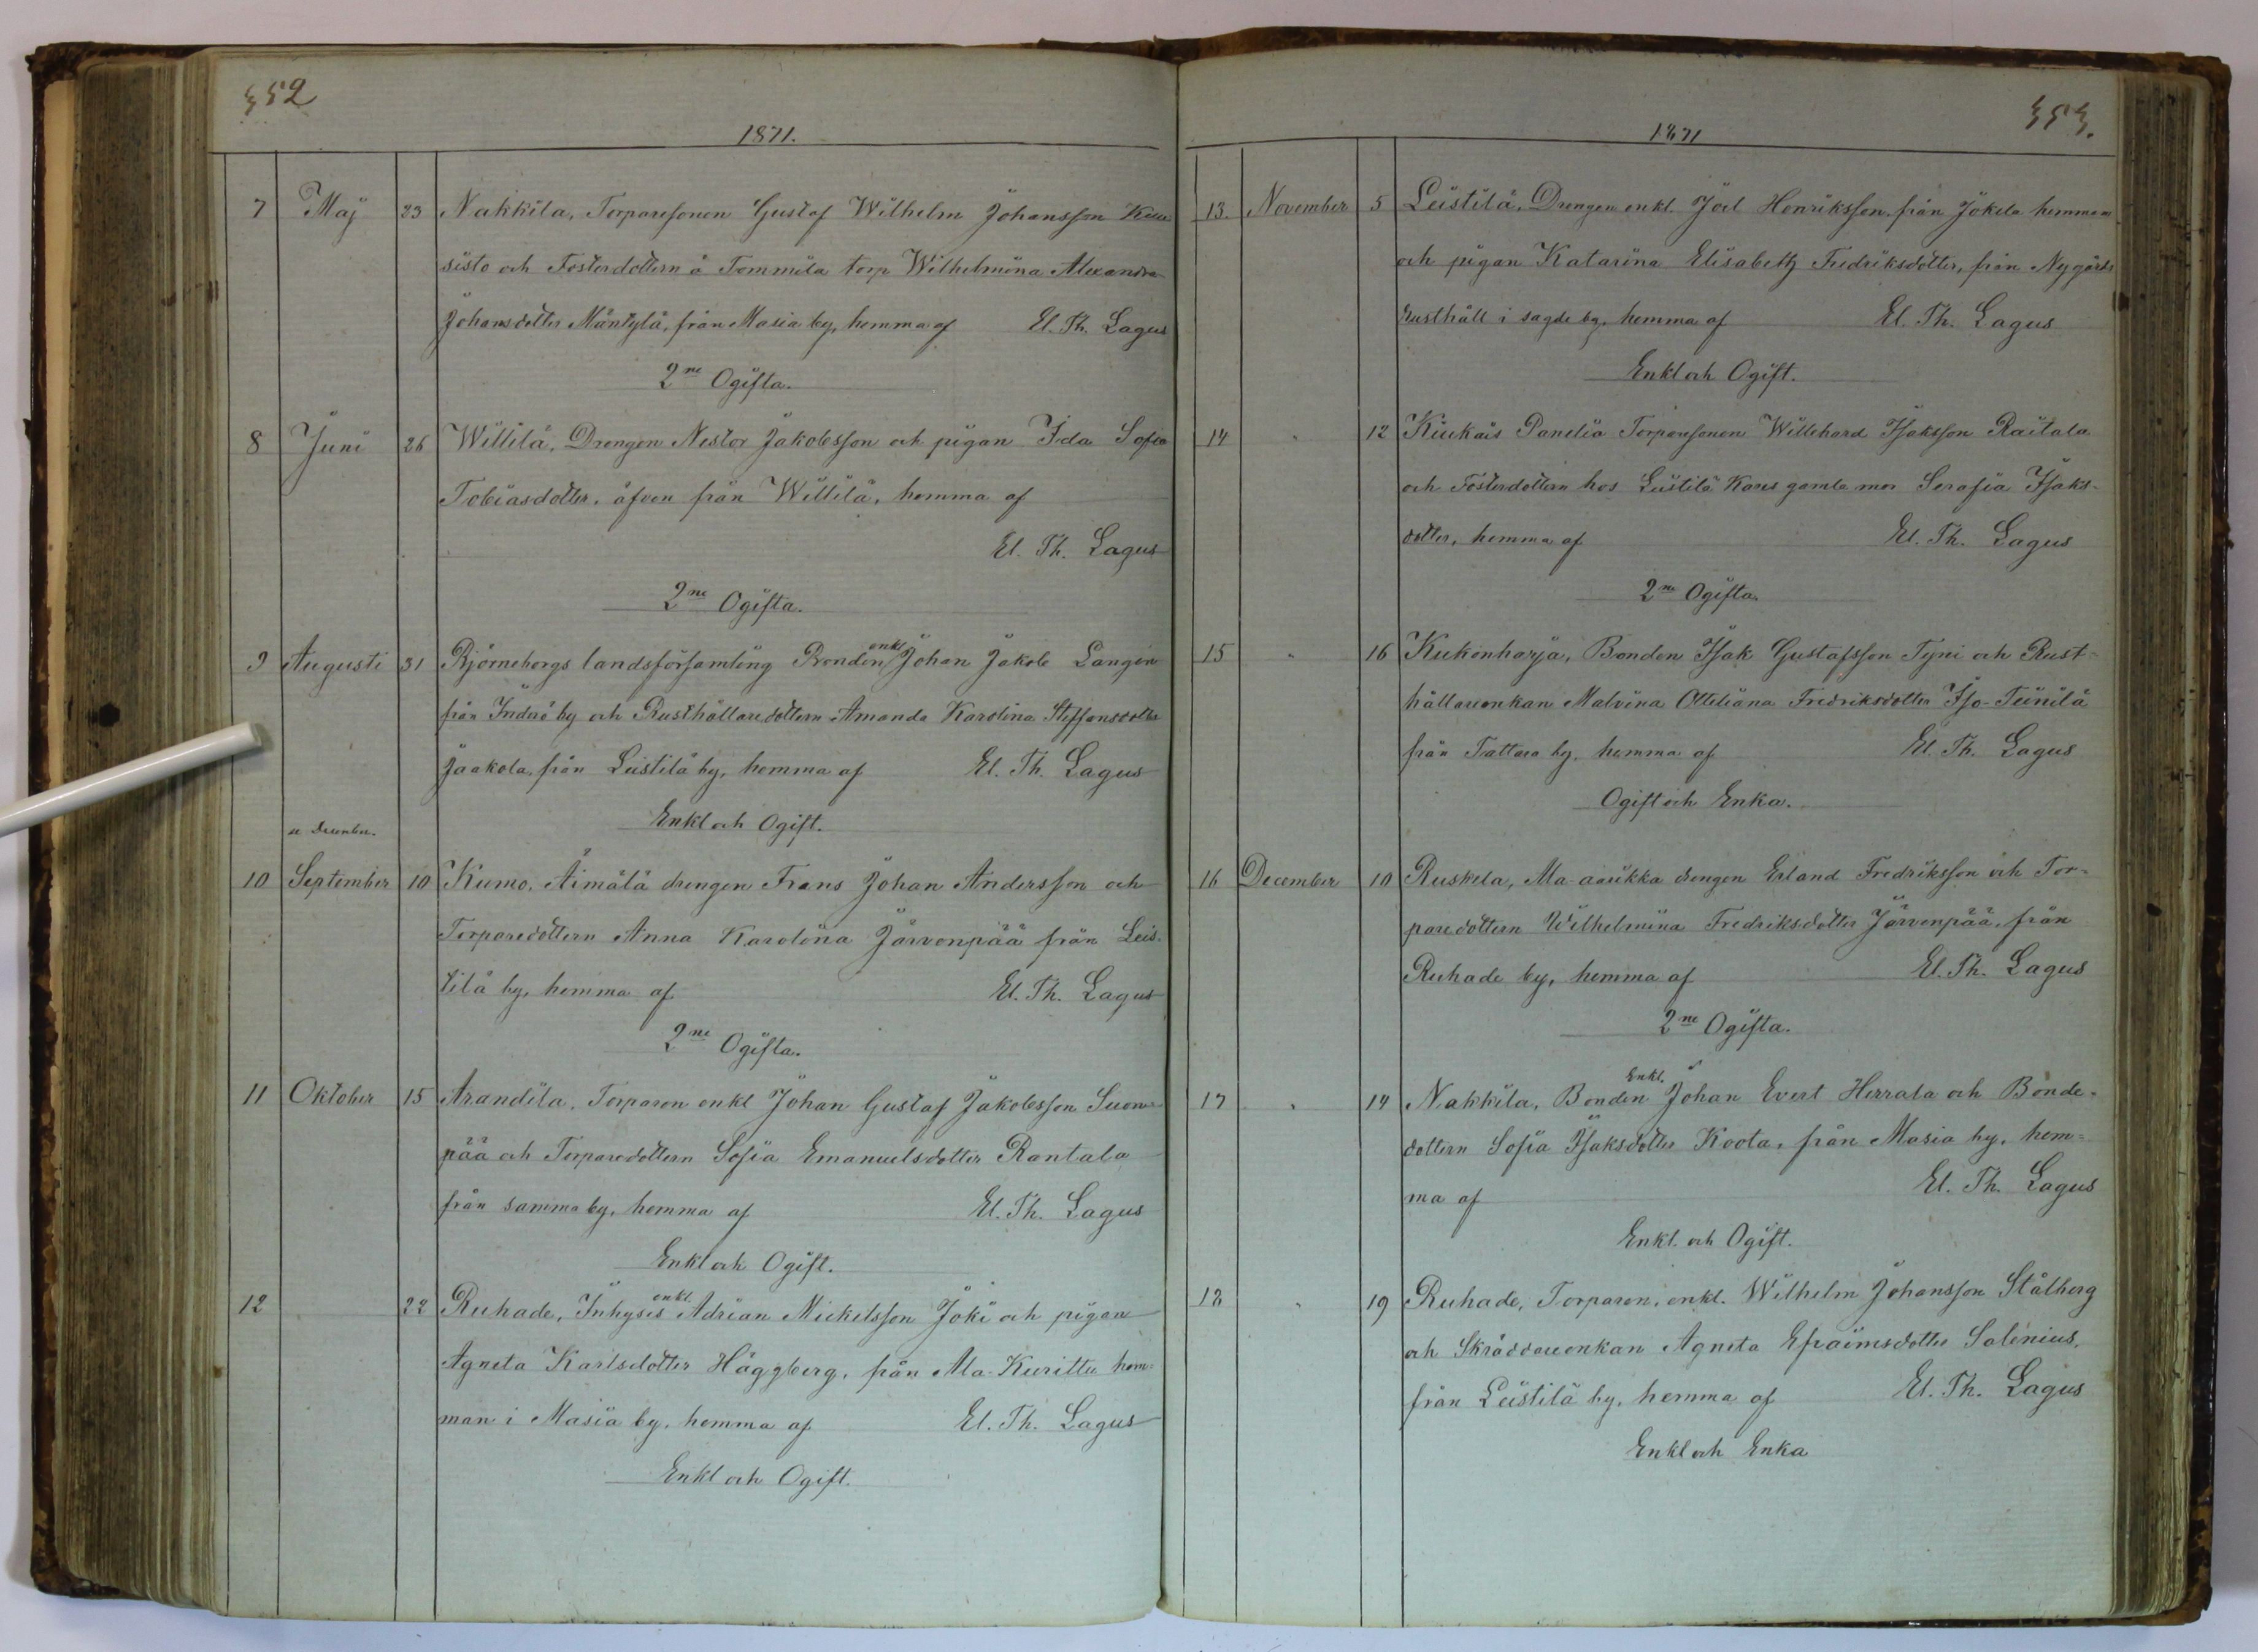 352
1871.
7 Maj 23 Nakkila, Torparesonen Gustaf Wilhelm Johansson
sisto och Fosterdottern å Tommila torp Wilhelmina Alexandra
Johansdotter Mäntylä, från Masia by, hemma af El. Th. Lagus
2ne Ogifta.
8 Juni 26 Willilä, Drengen Nestor Jakobsson och pigan Ida Sofia
Tobiasdotter, äfven från Willilä, hemma af
El. Th. Lagus
2ne Ogifta.
9 Augusti 31 Björneborgs landsförsamling Bonden enkl Johan Jakob Langén
från Inderö by och Rusthållaredottern Amanda Karolina Steffansdotter
Jaakola, från Leistilä by, hemma af El. Th. Lagus
Enkl och Ogift.
se December.
10 September 10 Kumo, Äimälä drengen Frans Johan Andersson och
Torparedottern Anna Karolina Järvenpää från Leis-
tilä by, hemma af El. Th. Lagus
2ne Ogifta.
11 Oktober 15 Arandila, Torparen enkl Johan Gustaf Jakobsson Suon-
pää och Torparedottern Sofia Emanuelsdotter Rantala
från samma by, hemma af El. Th. Lagus
Enkl och Ogift.
12 22 Ruhade, Inhyses enkl Adrian Mickelsson Joki och pigan
Agneta Karlsdotter Häggberg, från Ala-Kurittu hem-
man i Masia by, hemma af El. Th. Lagus
Enkl och Ogift.
353.
1871
13. November 5 Leistilä, Drengen enkl. Joel Henriksson, från Jokela hemman
och pigan Katarina Elisabeth Fredriksdotter, från Nygårds
Rusthåll i sagde by, hemma af El. Th. Lagus
Enkl och Ogift.
14 " 12 Kiukais Panelia Torparesonen Willehard Isaksson Raitala
och Fosterdottern hos Leistilä Kares gamla mor Serafia Isaks-
dotter, hemma af El. Th. Lagus
2ne Ogifta.
15 " 16 Kukonharja, Bonden Isak Gustafsson Tyni och Rust-
hållareenkan Malvina Otteliana Fredriksdotter Iso-Teinilä
från Tattara by, hemma af El. Th. Lagus
Ogift och Enka.
16 December 10 Ruskela, drengen Erland Fredriksson och Tor-
paredottern Wilhelmina Fredriksdotter Järvenpää, från
Ruhade by, hemma af El. Th. Lagus
2ne Ogifta.
17 " 14 Nakkila, Bonden Enkl. Johan Evert Herrala och Bonde-
dottern Sofia Isaksdotter Koota, från Masia by, hem-
ma af El. Th. Lagus
Enkl. och Ogift.
18 " 19 Ruhade, Torparen, enkl. Wilhelm Johansson Stålberg
och Skräddareenkan Agneta Efraimsdotter Salenius,
från Leistilä by, hemma af El. Th. Lagus
Enkl och Enka